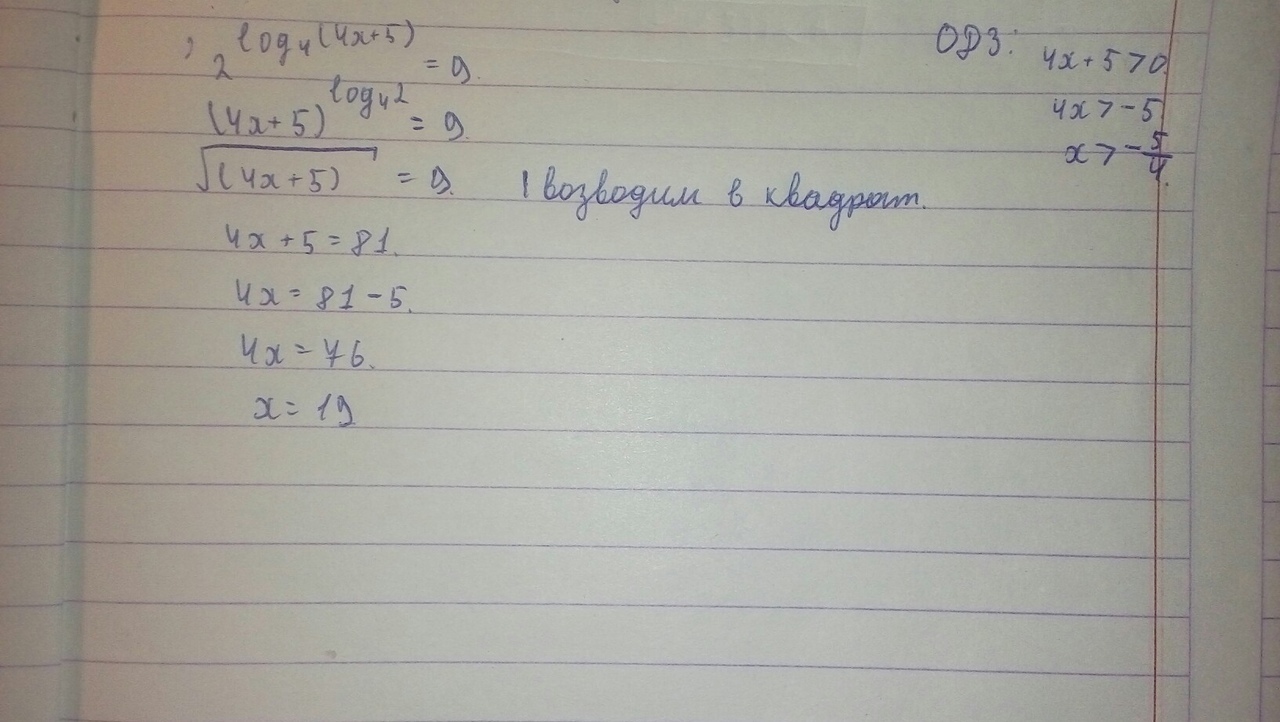 2^{log_4(4x+5)} = 9.
(4x+5)^{log_4 2} = 9.
√(4x+5) = 9. | возводим в квадрат.
4x + 5 = 81.
4x = 81 - 5.
4x = 76.
x = 19
ОДЗ:
4x + 5 > 0
4x > -5
x > -5/4.